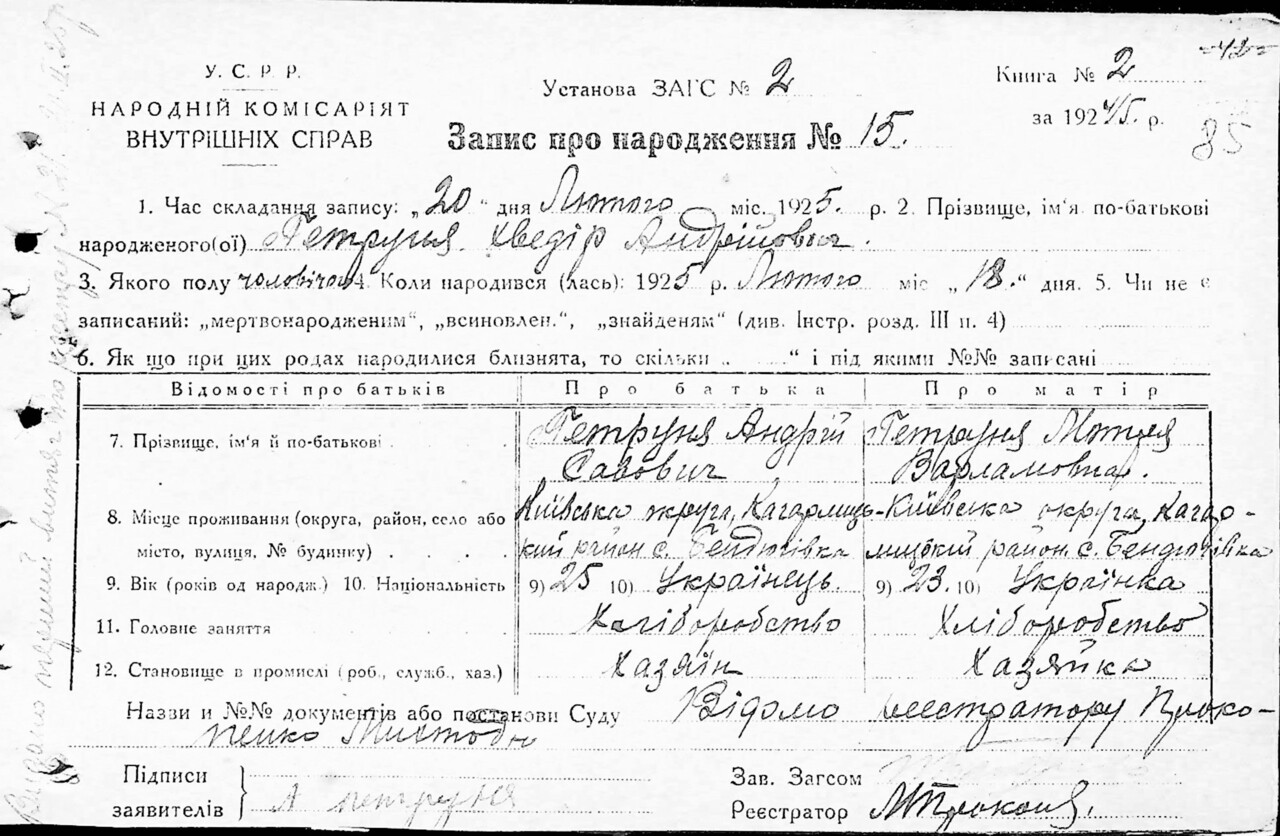 -42-
У. С. Р. Р.
НАРОДНІЙ КОМІСАРІЯТ
ВНУТРІШНІХ СПРАВ
Установа ЗАГС № 2
Книга № 2
за 1924/5. р.
85
Запис про народження № 15.
1. Час складання запису: „20" дня Лютого міс. 1925. р. 2. Прізвище, ім'я по-батькові
народженого(ої) Петруня Хведір Андрійович.
3. Якого полу чоловічого 4. Коли народився (лась): 1925 р. Лютого міс „18." дня. 5. Чи не є
записаний: „мертвонародженим", „всиновлен.", „знайденям" (див. Інстр. розд. III п. 4)
6. Як що при цих родах народилися близнята, то скільки „ " і під якими №№ записані
Відомості про батьків Про батька Про матір
7. Прізвище, ім'я й по-батькові Петруня Андрій Савович Петруня Мотря Варламовна.
8. Місце проживання (округа, район, село або Київська округа, Кагарлиць- Київська округа, Кагар-
місто, вулиця, № будинку) кий район с. Бендюгівка лицький район с. Бендюгівка
9. Вік (років од народж.) 10. Національність 9) 25 10) Українець. 9) 23. 10) Українка
11. Головне заняття Хліборобство Хліборобство
12. Становище в промислі (роб., служб., хаз.) Хазяїн Хазяйка
Назви и №№ документів або постанови Суду Відомо реєстратору Проко-
пенко
Підписи
заявителів А Петруня
Зав. Загсом
Реєстратор МПрокоп.
Видано перший витяг